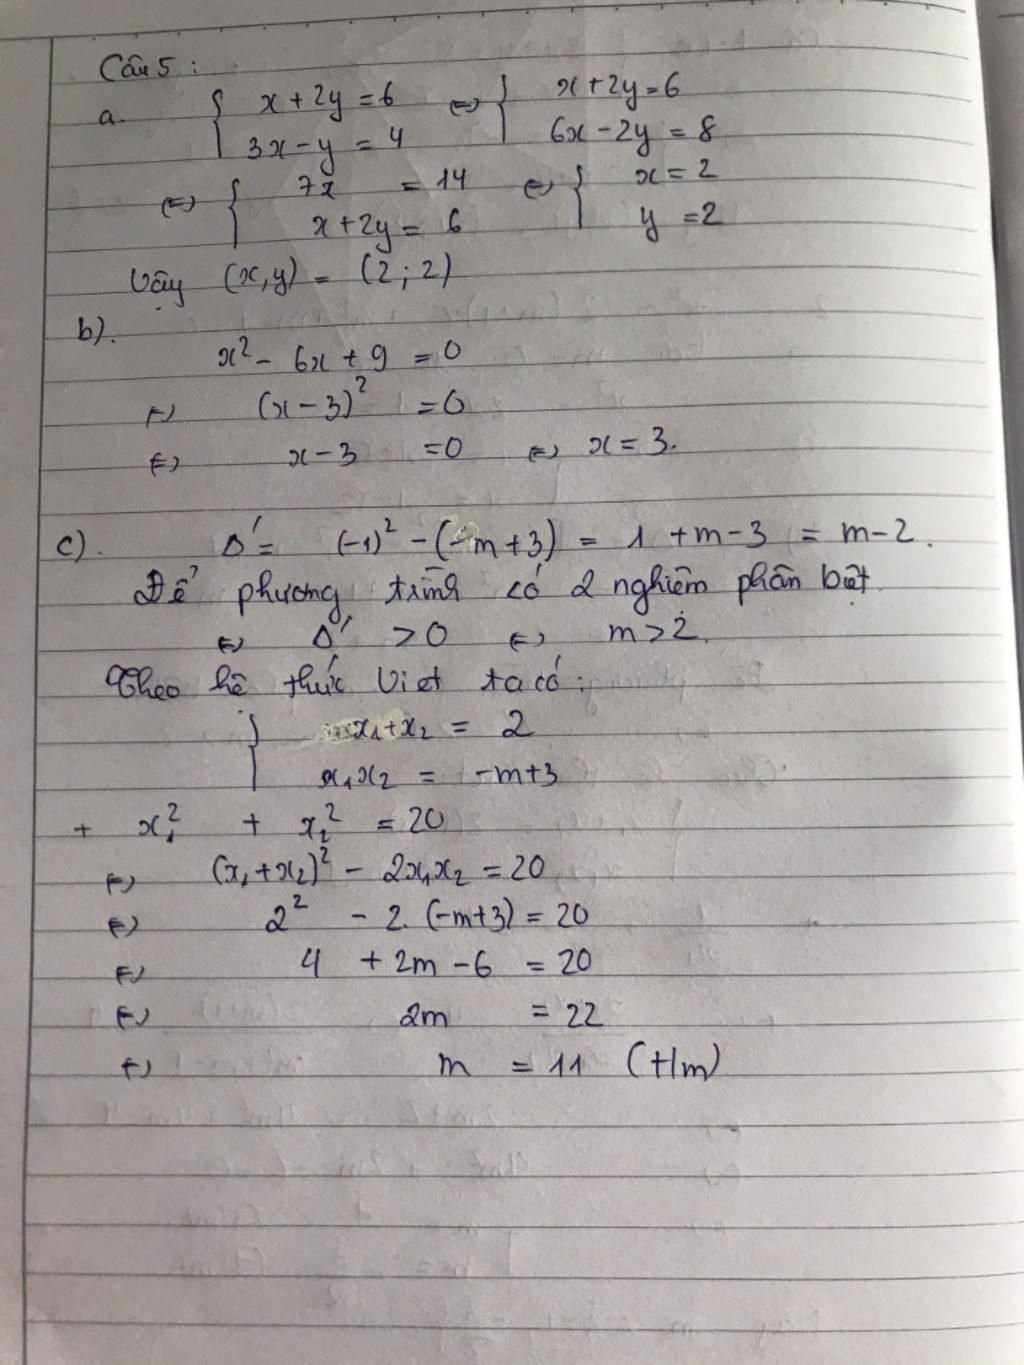 Câu 5 :
a. { x + 2y = 6 <=> { x + 2y = 6
3x - y = 4 6x - 2y = 8
<=> { 7x = 14 <=> { x = 2
x + 2y = 6 y = 2
Vậy (x,y) = (2 ; 2)
b).
x² - 6x + 9 = 0
<=> (x - 3)² = 0
<=> x - 3 = 0 <=> x = 3.
c). Δ' = (-1)² - (-m+3) = 1 + m - 3 = m - 2.
Để phương trình có 2 nghiệm phân biệt
<=> Δ' > 0 <=> m > 2.
Theo hệ thức Viet ta có :
{ x₁+x₂ = 2
x₁x₂ = -m+3
+ x₁² + x₂² = 20
<=> (x₁+x₂)² - 2x₁x₂ = 20
<=> 2² - 2. (-m+3) = 20
<=> 4 + 2m - 6 = 20
<=> 2m = 22
<=> m = 11 (t/m)